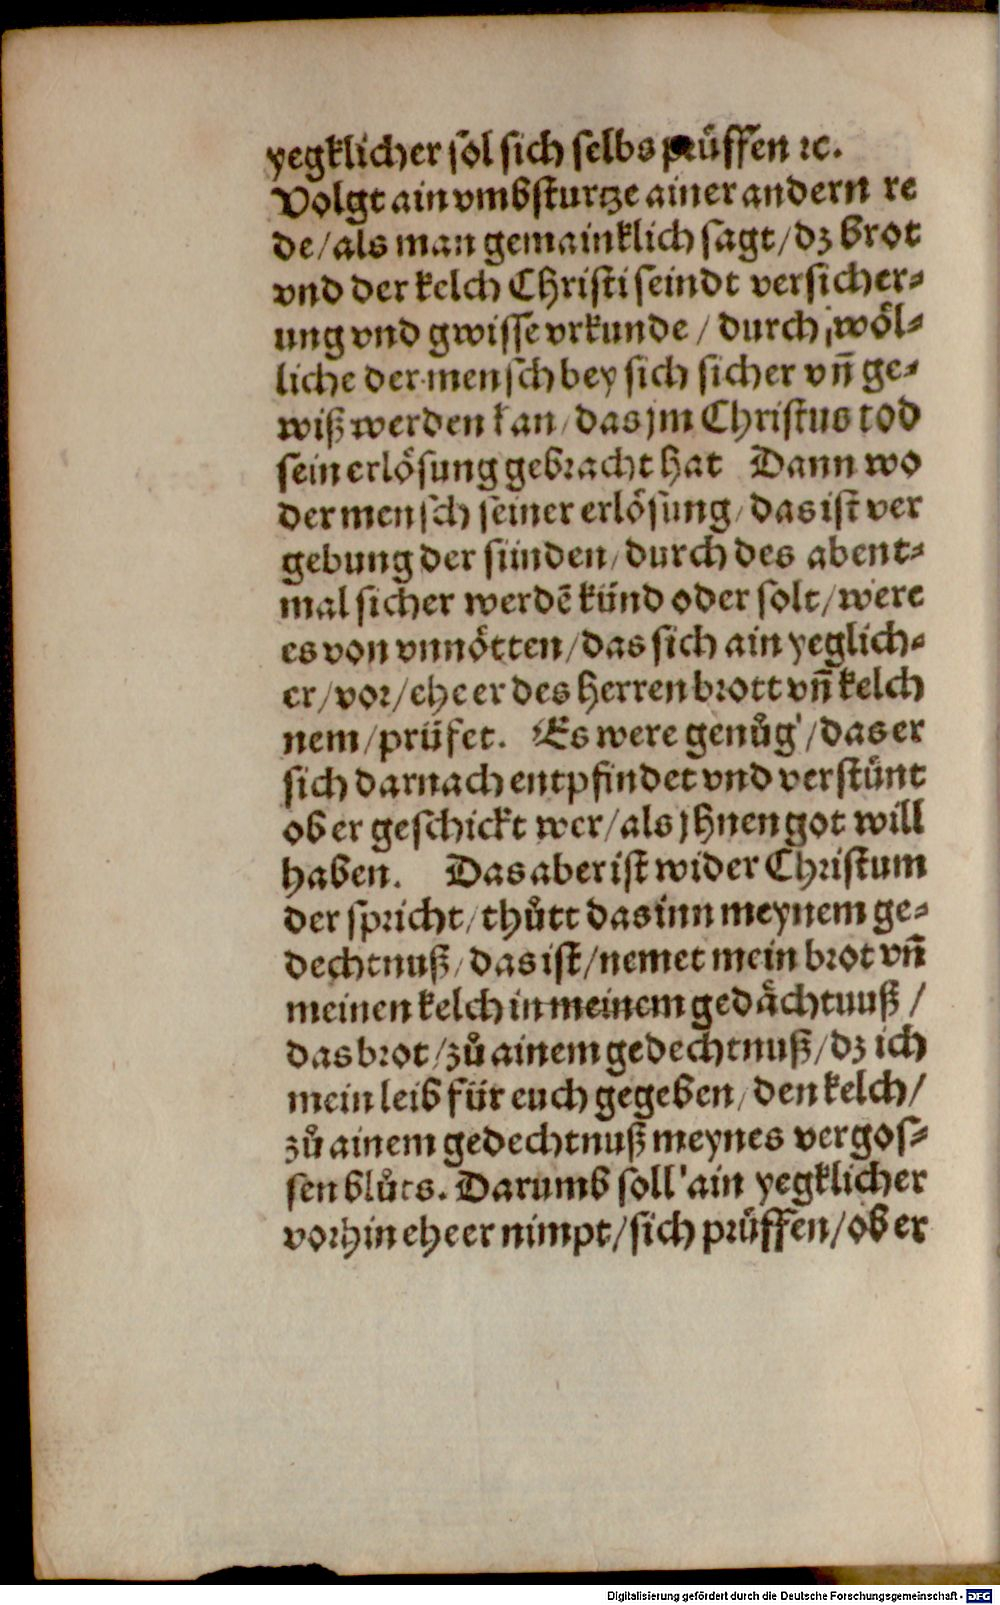 yegklicher sol sich selbs prüffen ꝛc.
Volgt ain vmbsturtze ainer andern re
de/als man gemainklich sagt/dz brot
vnd der kelch Christi seindt versicher⸗
ung vnd gwisse vrkunde / durch wöl⸗
liche der mensch bey sich sicher vn̄ ge⸗
wiß werden kan/das jm Christus tod
sein erlösung gebracht hat Dann wo
der mensch seiner erlösung/das ist ver
gebung der sünden/durch des abent⸗
mal sicher werdē künd oder solt/were
es von vnnötten/das sich ain yeglich⸗
er/vor/ehe er des herren brott vn̄ kelch
nem/prüfet. Es were genůg/das er
sich darnach entpfindet vnd verstünt
ob er geschickt wer/als jhnen got will
haben. Das aber ist wider Christum
der spricht/thůtt das inn meynem ge⸗
dechtnuß/das ist/nemet mein brot vn̄
meinen kelch in meinem gedächtnuß /
das brot/zů ainem gedechtnuß/dz ich
mein leib für euch gegeben/den kelch/
zů ainem gedechtnuß meynes vergos⸗
sen blůts. Darumb soll ain yegklicher
vorhin ehe er nimpt/sich prüffen/ob er
Digitalisierung gefördert durch die Deutsche Forschungsgemeinschaft - DFG